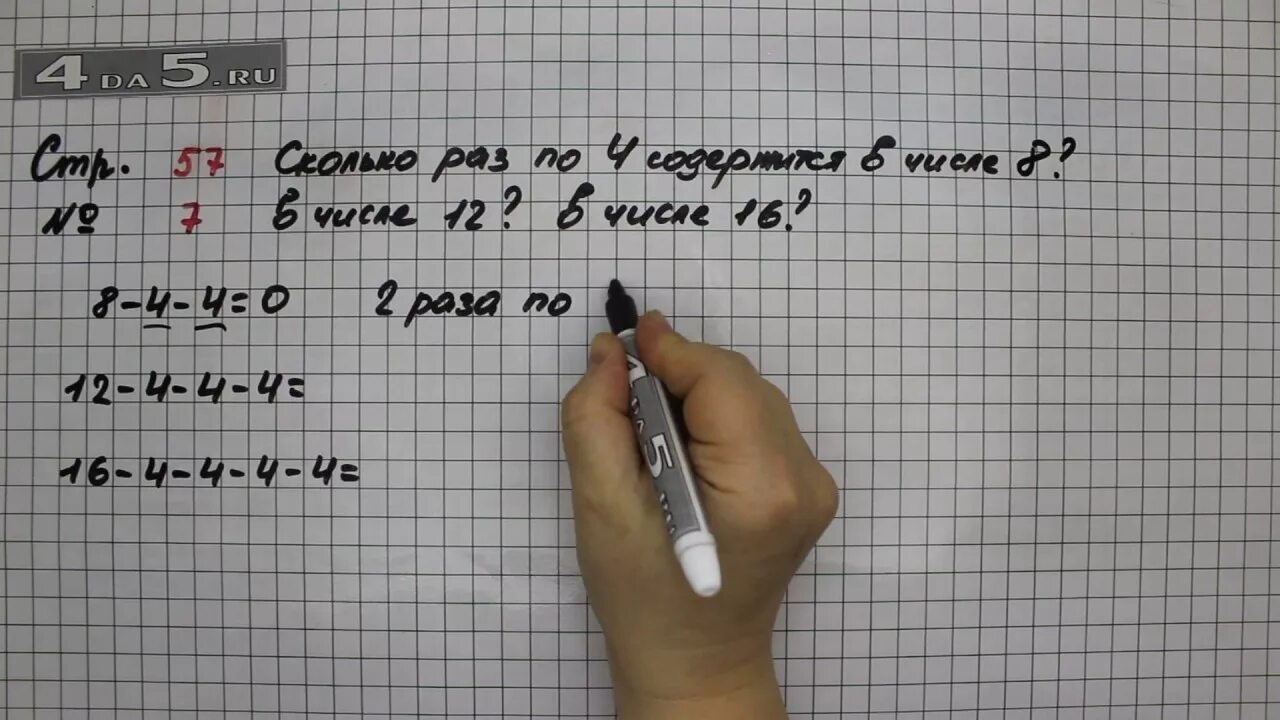 4DA5.RU
Стр. 57 Сколько раз по 4 содержится в числе 8?
№ 7 в числе 12? в числе 16?
8-4-4=0 2 раза по
12-4-4-4=
16-4-4-4-4=